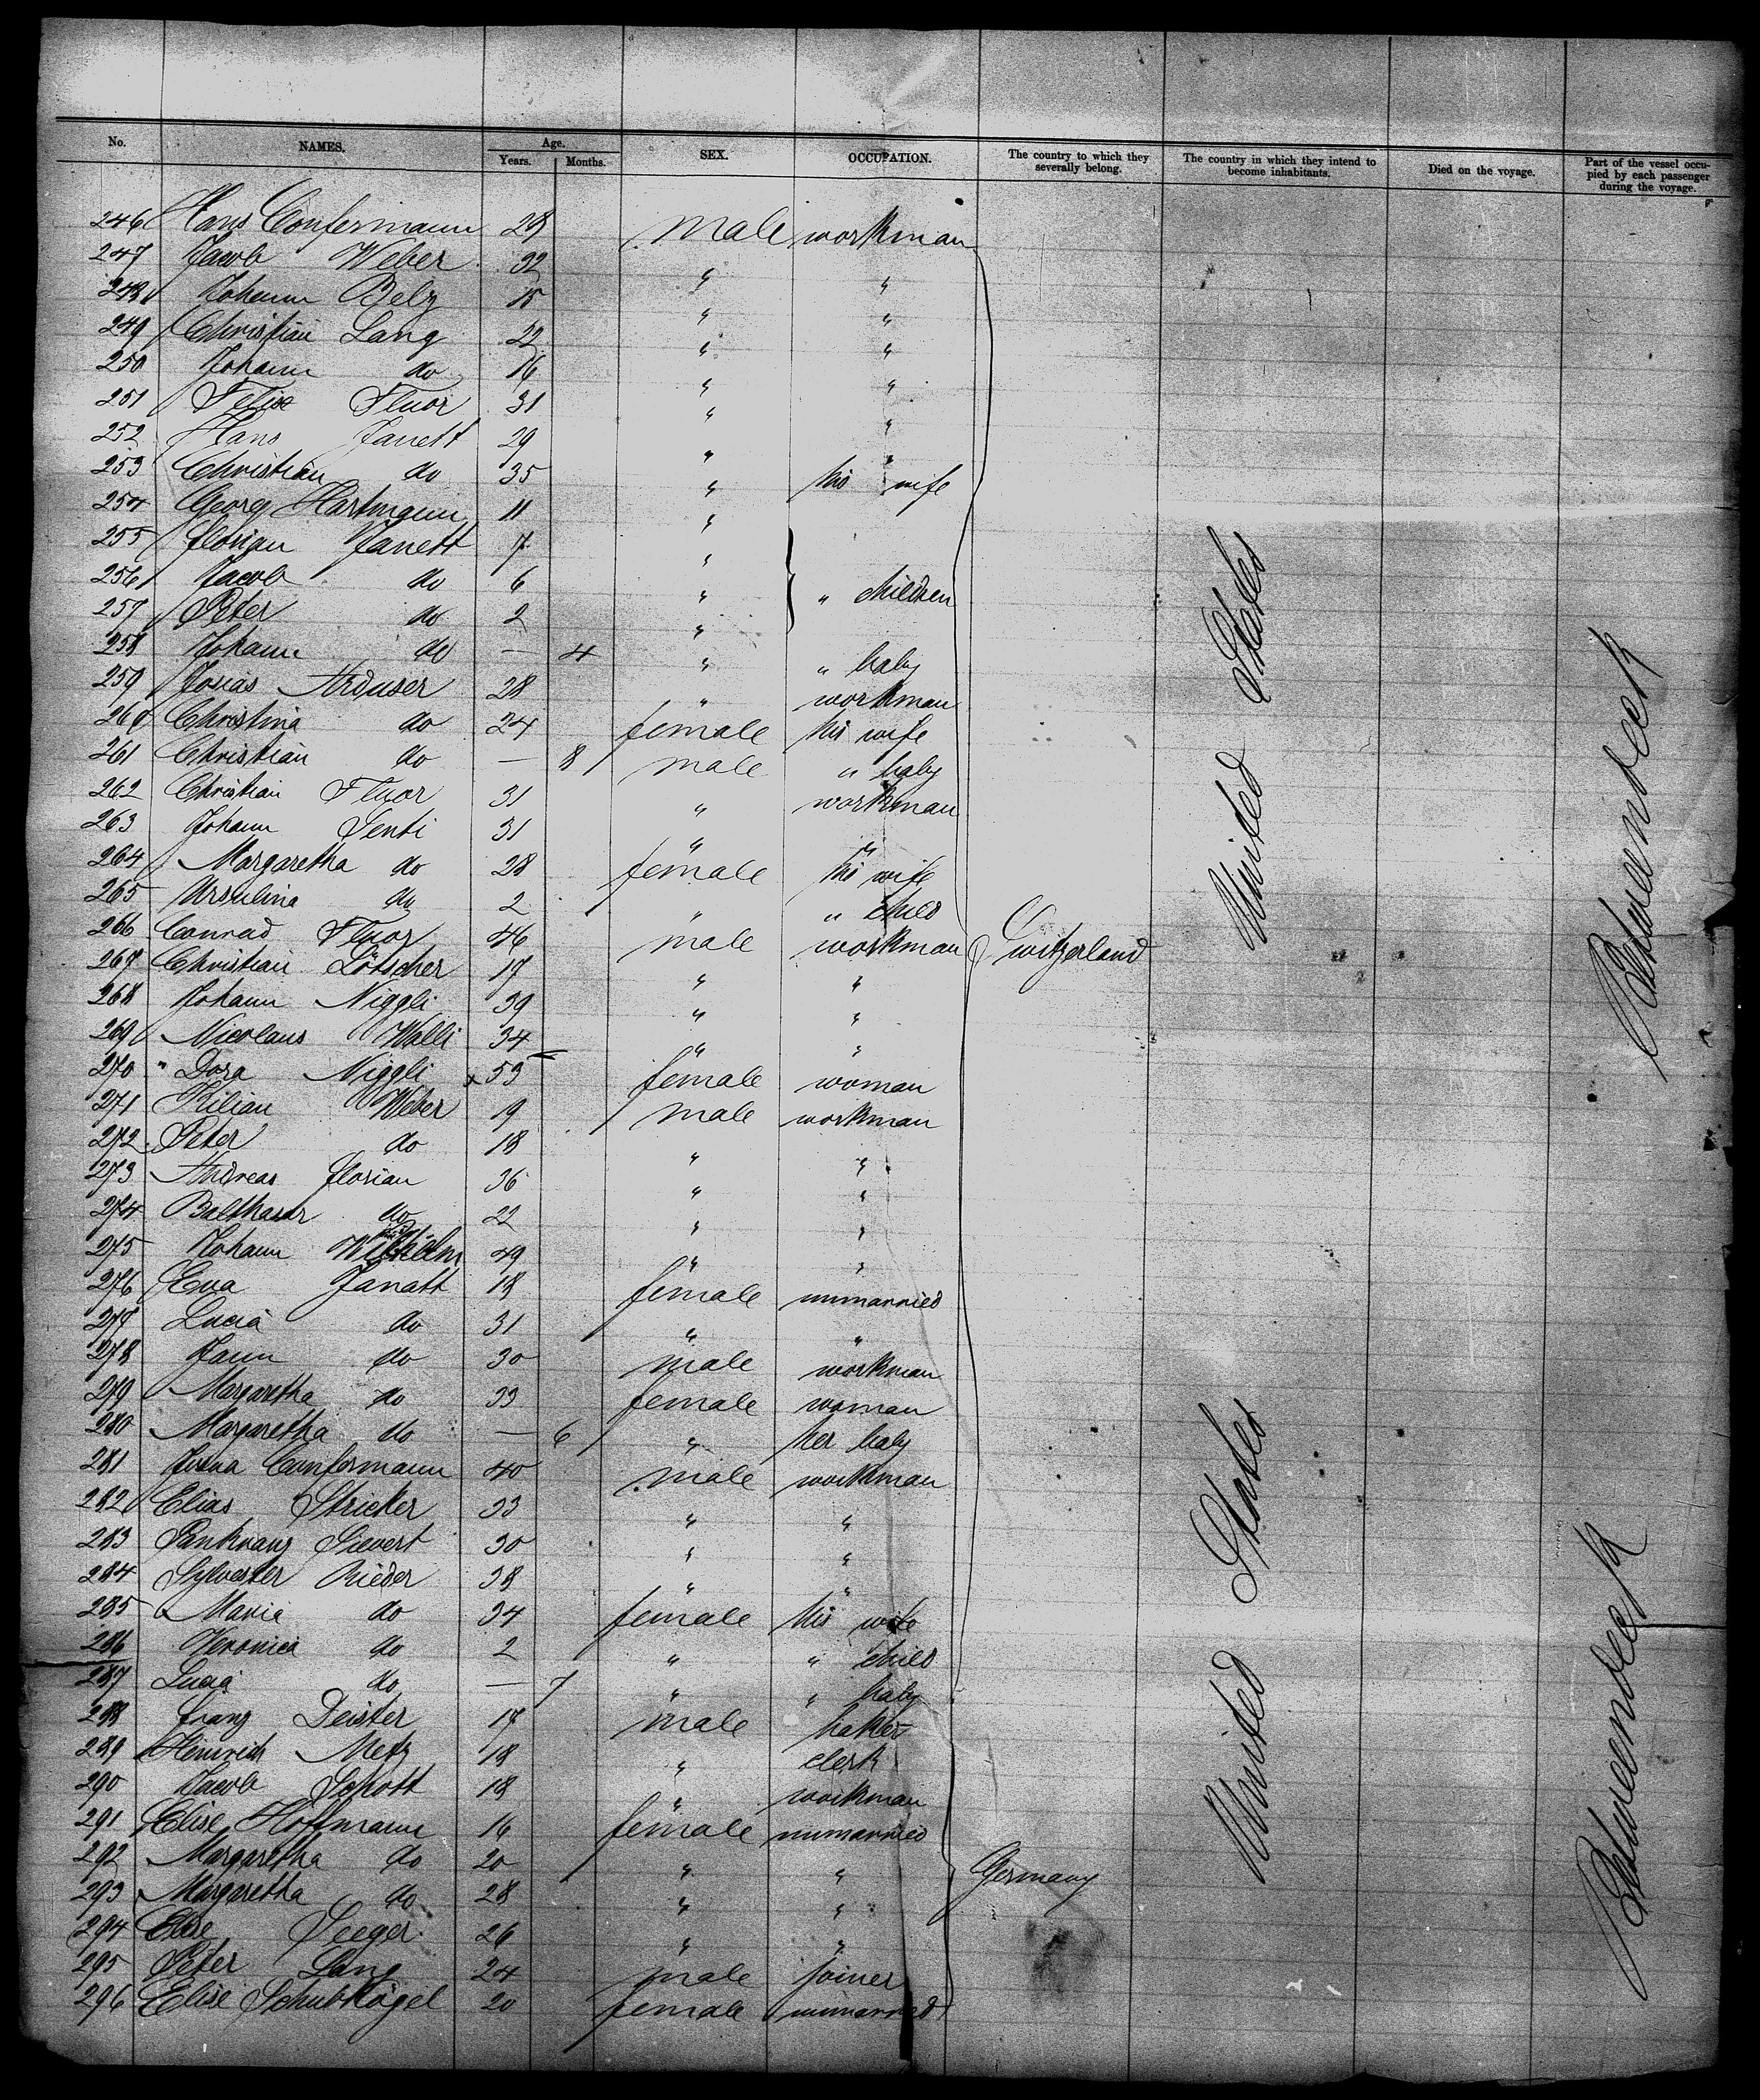 No. NAMES. Age. Years. Months. SEX. OCCUPATION. The country to which they severally belong. The country in which they intend to become inhabitants. Died on the voyage. Part of the vessel occupied by each passenger during the voyage.
246 Hans Confermann 28 male workman
247 Jacob Weber 32 " "
248 Johann Belz 15 " "
249 Christian Lang 22 " "
250 Johann do 16 " "
251 Felix Fluor 31 " "
252 Hans Janett 29 " "
253 Christian do 35 " his wife
254 Georg Hartmann 11 "
255 Florian Janett 7 "
256 Jacob do 6 " " children
257 Peter do 2 "
258 Johann do — 4 " " baby
259 Josias Arduser 28 " workman
260 Christina do 24 female his wife
261 Christian do — 8 male " baby
262 Christian Fluor 31 " workman
263 Johann Senti 31 " "
264 Margaretha do 28 female his wife
265 Ursulina do 2 " " child
266 Conrad Fluor 46 male workman Switzerland
267 Christian Lötscher 17 " "
268 Johann Niggli 39 " "
269 Nicolaus Walli 34 " "
270 " Dora Niggli x 53 female woman
271 Kilian Weber 19 male workman
272 Peter do 18 " "
273 Andreas Florian 36 " "
274 Balthasar do 22 " "
275 Johann 49 " "
276 Eva Janatt 18 female unmarried
277 Lucia do 31 " "
278 Jann do 30 male workman
279 Margaretha do 33 female woman
280 Margaretha do — 6 " her baby
281 Confermann 40 male workman
282 Elias Stricker 33 " "
283 Pankranz Sievert 30 " "
284 Sylvester Rieder 38 " "
285 Maria do 34 female his wife
286 Veronica do 2 " " child
287 Lucia do — 7 " " baby
288 Franz Deister 17 male baker
289 Heinrich Metz 18 " clerk
290 Jacob Schott 18 " workman
291 Elise Hoffmann 16 female unmarried
292 Margaretha do 20 " " Germany
293 Margaretha do 28 " "
294 Elise Seeger 26 " "
295 Peter Lang 24 male joiner
296 Elise Schubkögel 20 female unmarried
United States
United States
Betweendeck
Betweendeck